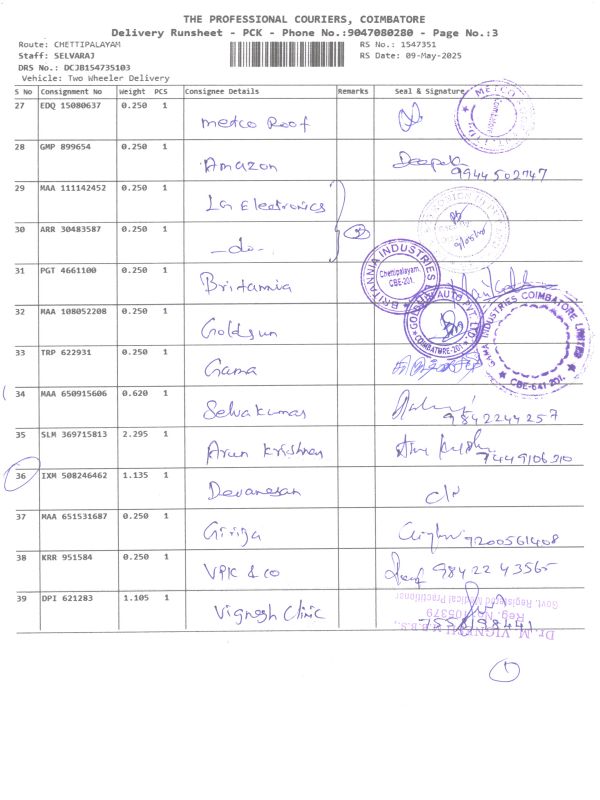 THE PROFESSIONAL COURIERS, COIMBATORE
Delivery Runsheet - PCK - Phone No.:9047080280 - Page No.:3
Route: CHETTIPALAYAM RS No.: 1547351
Staff: SELVARAJ RS Date: 09-May-2025
DRS No.: DCJB154735103
Vehicle: Two Wheeler Delivery
S No Consignment No Weight PCS Consignee Details Remarks Seal & Signature
27 EDQ 15080637 0.250 1 Metco Roof
28 GMP 899654 0.250 1 Amazon Deepak
9944502747
29 MAA 111142452 0.250 1 La Electronics
30 ARR 30483587 0.250 1 -do-
31 PGT 4661100 0.250 1 Britannia
BRITANNIA INDUSTRIES
Chettipalayam,
CBE-201.
32 MAA 108052208 0.250 1 Goldsun
AUTO PVT LTD
COIMBATORE-201
33 TRP 622931 0.250 1 Gama
GAMA INDUSTRIES COIMBATORE LIMITED
CBE-641 201.
34 MAA 650915606 0.620 1 Selvakumar
9842244257
35 SLM 369715813 2.295 1 Arun Krishnan
7449106210
36 IXM 508246462 1.135 1 Devanesan
37 MAA 651531687 0.250 1 Girija 9200561408
38 KRR 951584 0.250 1 VPK & co 9842243565
39 DPI 621283 1.105 1 Vignesh Clinic
Govt. Registered Medical Practitioner
Dr. M. VIGNESH M.B.B.S.,
1